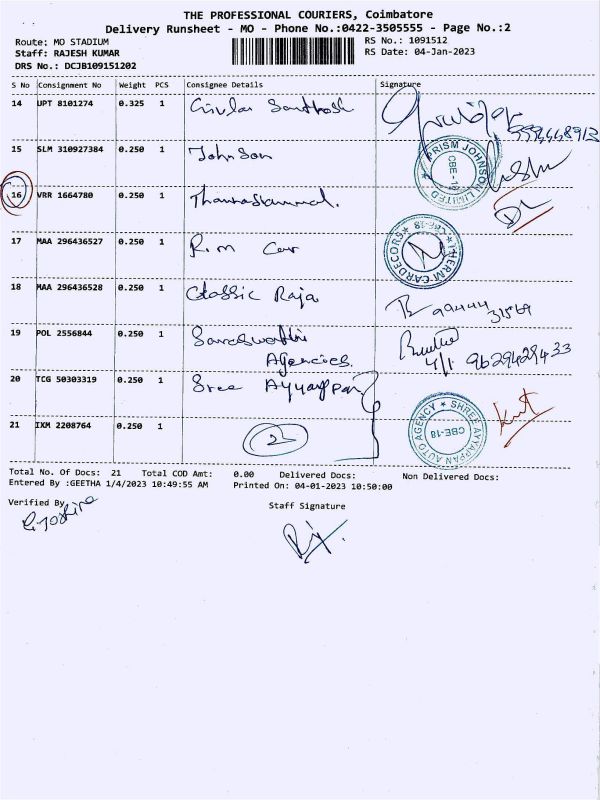 THE PROFESSIONAL COURIERS, Coimbatore
Delivery Runsheet - MO - Phone No.:0422-3505555 - Page No.:2
Route: MO STADIUM
Staff: RAJESH KUMAR
DRS No.: DCJB109151202
RS No.: 1091512
RS Date: 04-Jan-2023
S No Consignment No Weight PCS Consignee Details Signature
14 UPT 8101274 0.325 1 Santhosh
15 SLM 310927384 0.250 1 Johnson
PRISM JOHNSON LIMITED CBE-18
16 VRR 1664780 0.250 1
17 MAA 296436527 0.250 1 R.m Car
THERM CARDECORS CBE-18
18 MAA 296436528 0.250 1 Classic Raja 99444 31569
19 POL 2556844 0.250 1 Saraswathi Agencies 4/1 9629429433
20 TCG 50303319 0.250 1 Sree Ayyappan
SHREE AYYAPPAN AUTO AGENCY CBE-18
21 IXM 2208764 0.250 1 2
Total No. Of Docs: 21 Total COD Amt: 0.00 Delivered Docs: Non Delivered Docs:
Entered By :GEETHA 1/4/2023 10:49:55 AM Printed On: 04-01-2023 10:50:00
Verified By
Staff Signature